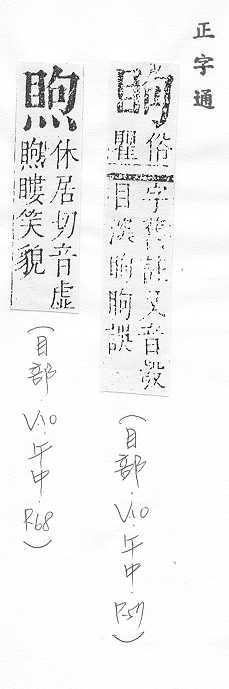 正字通
眗
俗
瞿
字舊註又音
目深眗眗誤
休居切音虛
瞜笑貌
(目部.V.10.午中.P.57)
(目部.V.10.午中.P.68)